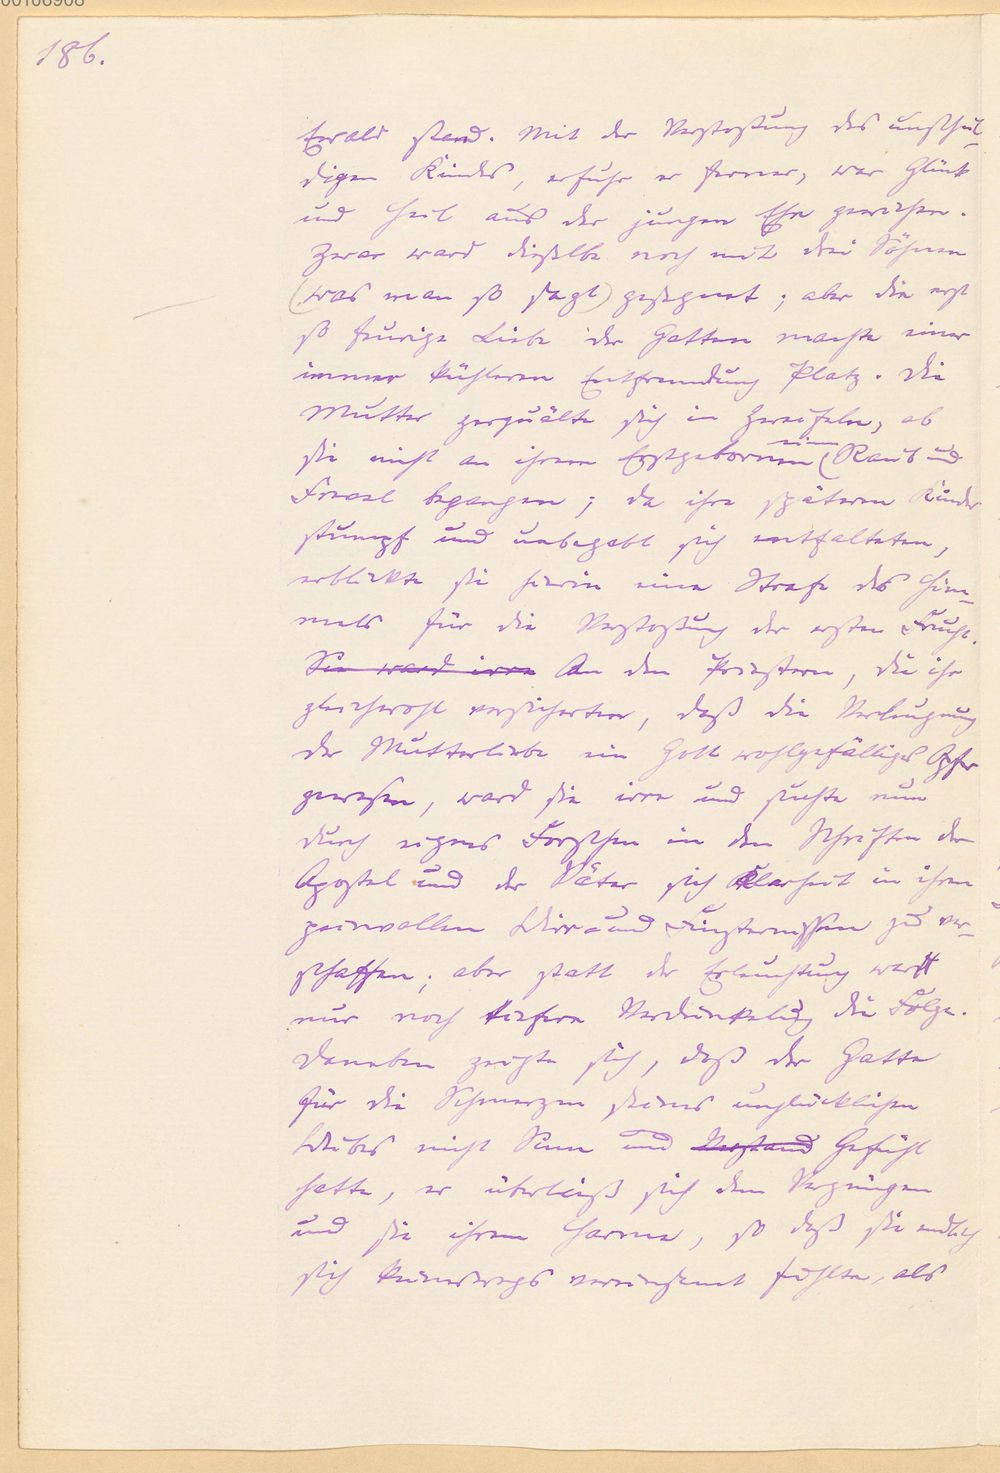 00106908
186.
Ewald stand. Mit der Verstoßung des unschul-
digen Kindes, erfuhr er ferner, war Glück
und Heil aus der jungen Ehe gewichen.
Zwar ward dieselbe noch mit drei Söhnen
(was man so sagt) gesegnet; aber die erst
so feurige Liebe der Gatten machte einer
immer kühleren Entfremdung Platz. Die
Mutter zerquälte sich in Zweifeln, ob
sie nicht an ihrem Erstgebornen einen Raub und
Frevel begangen; da ihre späteren Kinder
stumpf und unbegabt sich entfalteten,
erblickte sie hierin eine Strafe des Him-
mels für die Verstoßung der ersten Frucht.
Sie ward irre An den Priestern, die ihr
gleichwohl versicherten, daß die Verleugnung
der Mutterliebe ein Gott wohlgefälliges Opfer
gewesen, ward sie irre und suchte nun
durch eigenes Forschen in den Schriften der
Apostel und der Väter sich Klarheit in ihren
peinvollen Wirr- und Finsternissen zu ver-
schaffen; aber statt der Erleuchtung ward
nur noch tiefere Verdunkelung die Folge.
Daneben zeigte sich, daß der Gatte
für die Schmerzen seines unglücklichen
Weibes nicht Sinn und Verstand Gefühl
hatte, er überließ sich dem Vergnügen
und sie ihrem Harme, so daß sie endlich
sich keineswegs vereinsamt fühlte, als